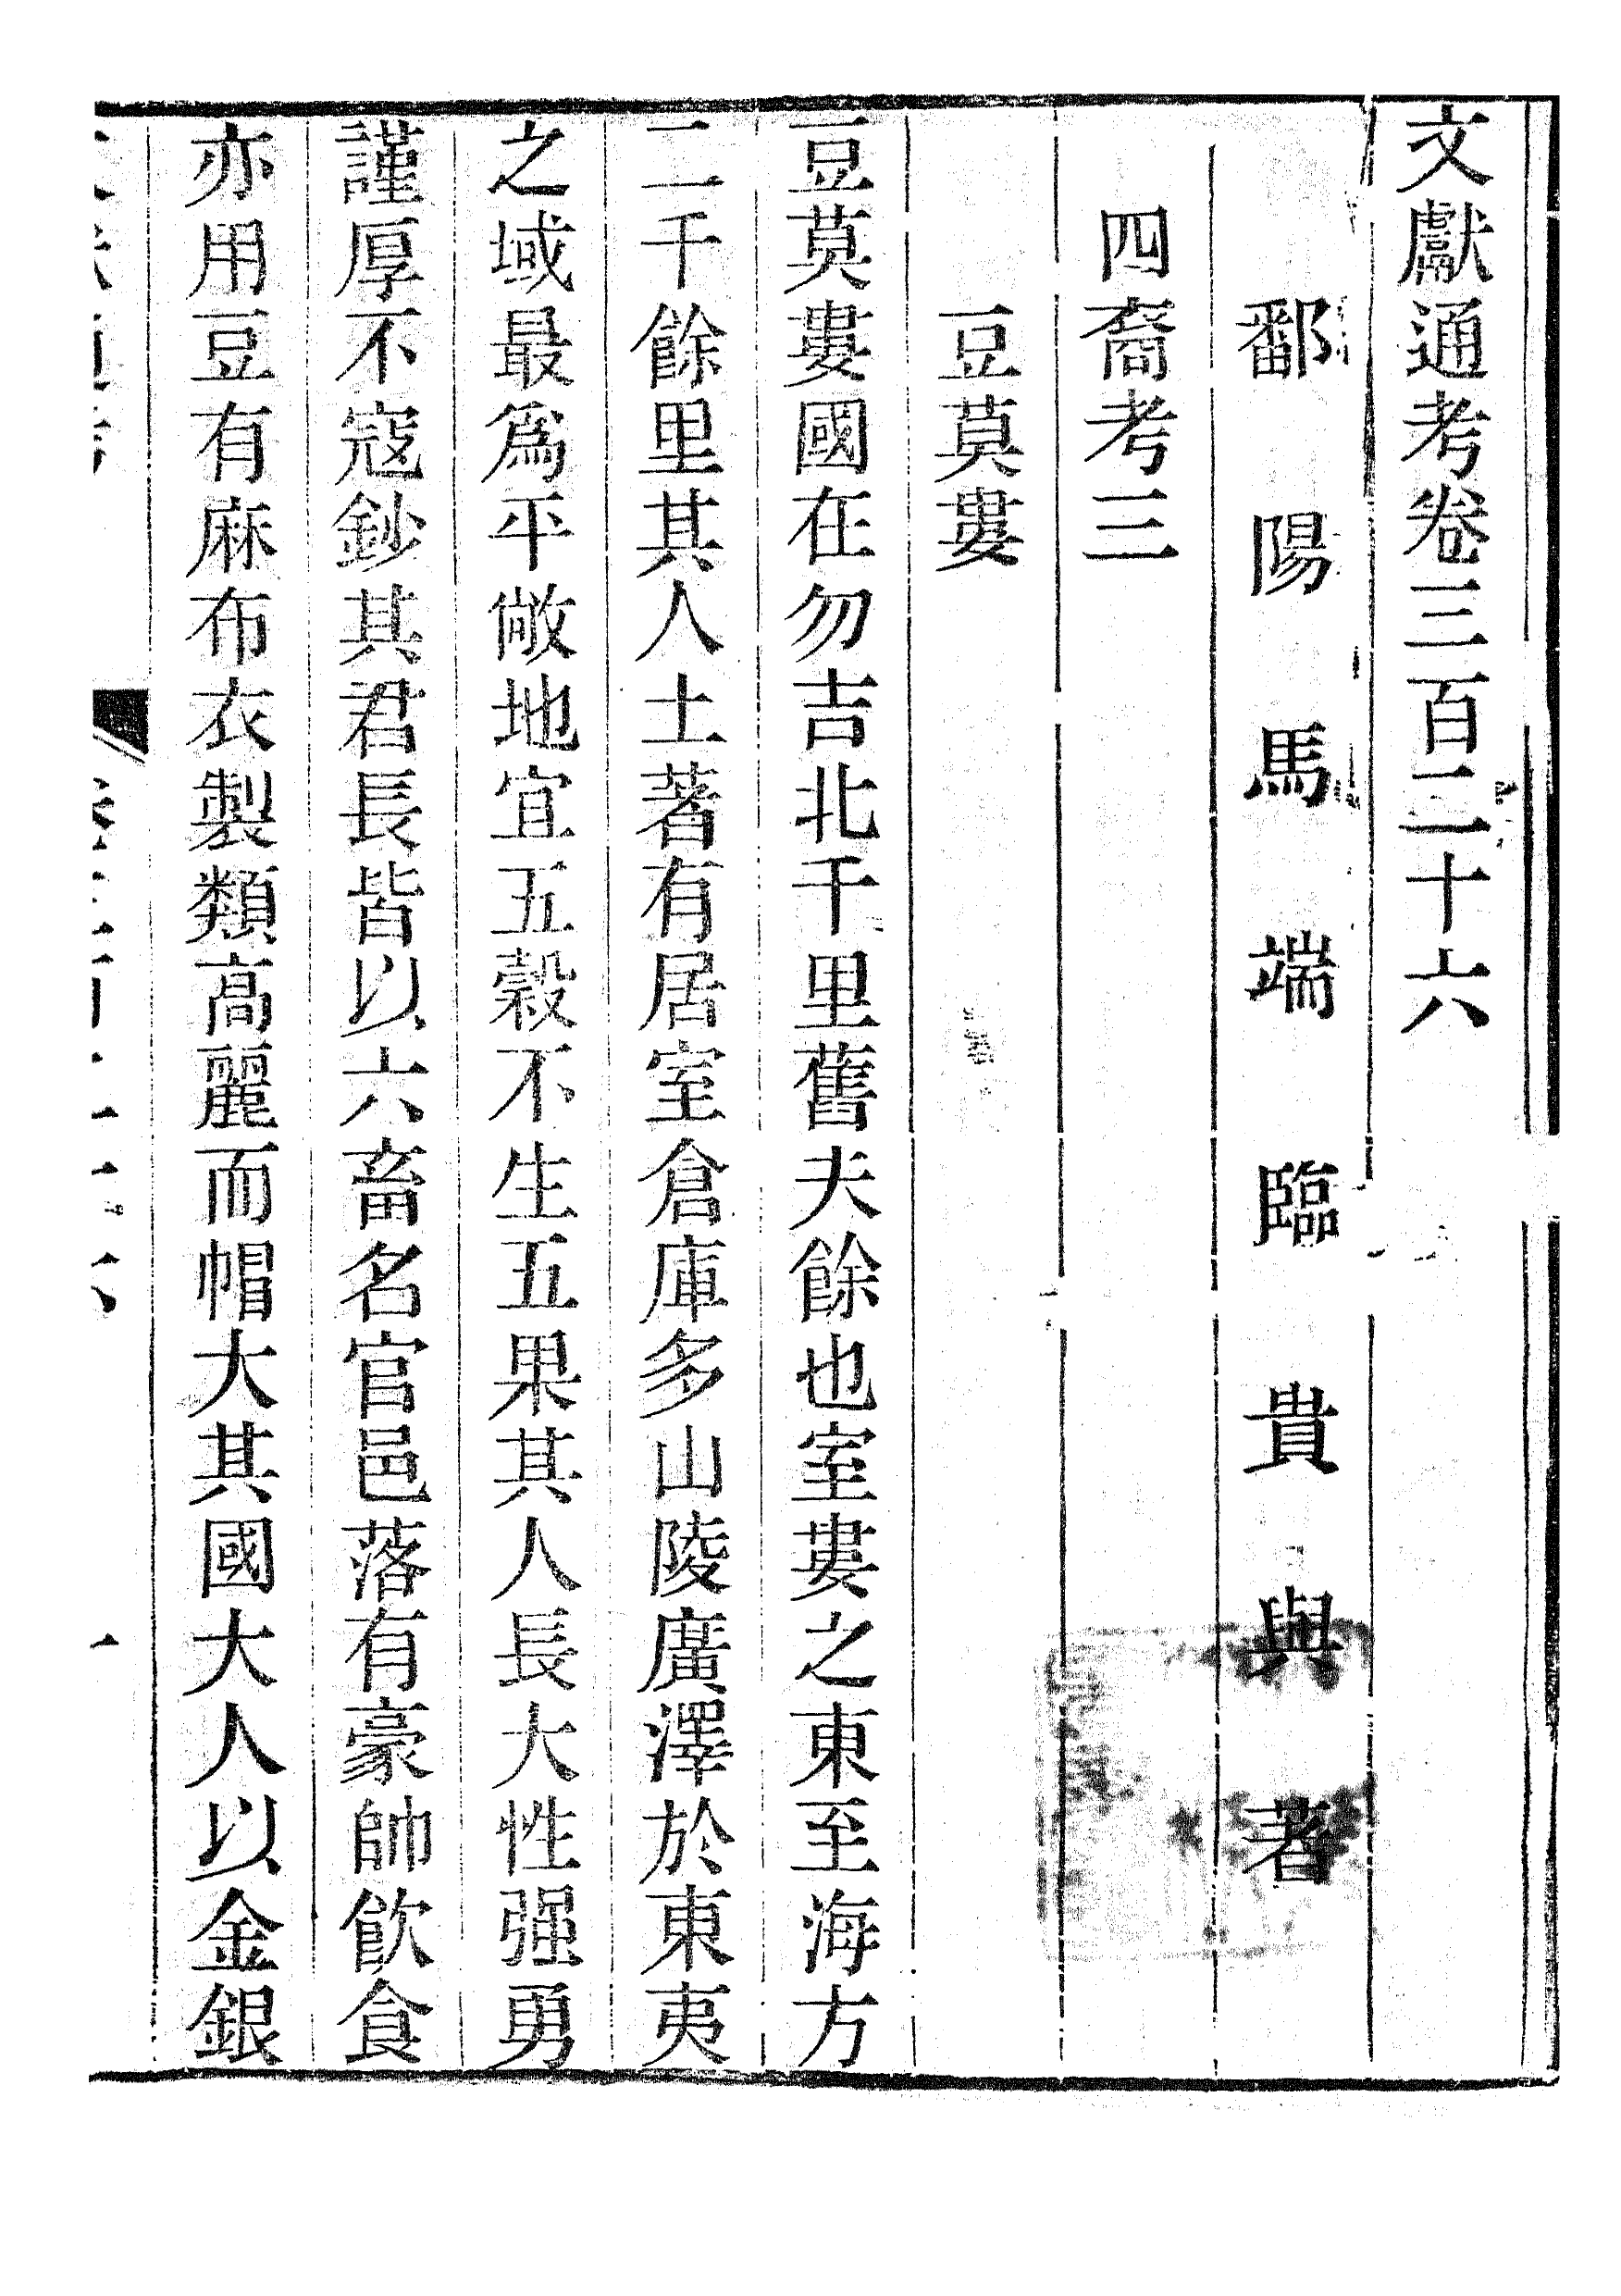 文獻通考卷三百二十六
鄱陽馬端臨貴與著
四裔考三
豆莫婁
豆莫婁國在勿吉北千里舊夫餘也室婁之東至海方
二千餘里其人土著有居室倉庫多山陵廣澤於東夷
之域最爲平敞地宜五穀不生五果其人長大性强勇
謹厚不寇鈔其君長皆以六畜名官邑落有豪帥飲食
亦用豆有麻布衣製類高麗而帽大其國大人以金銀